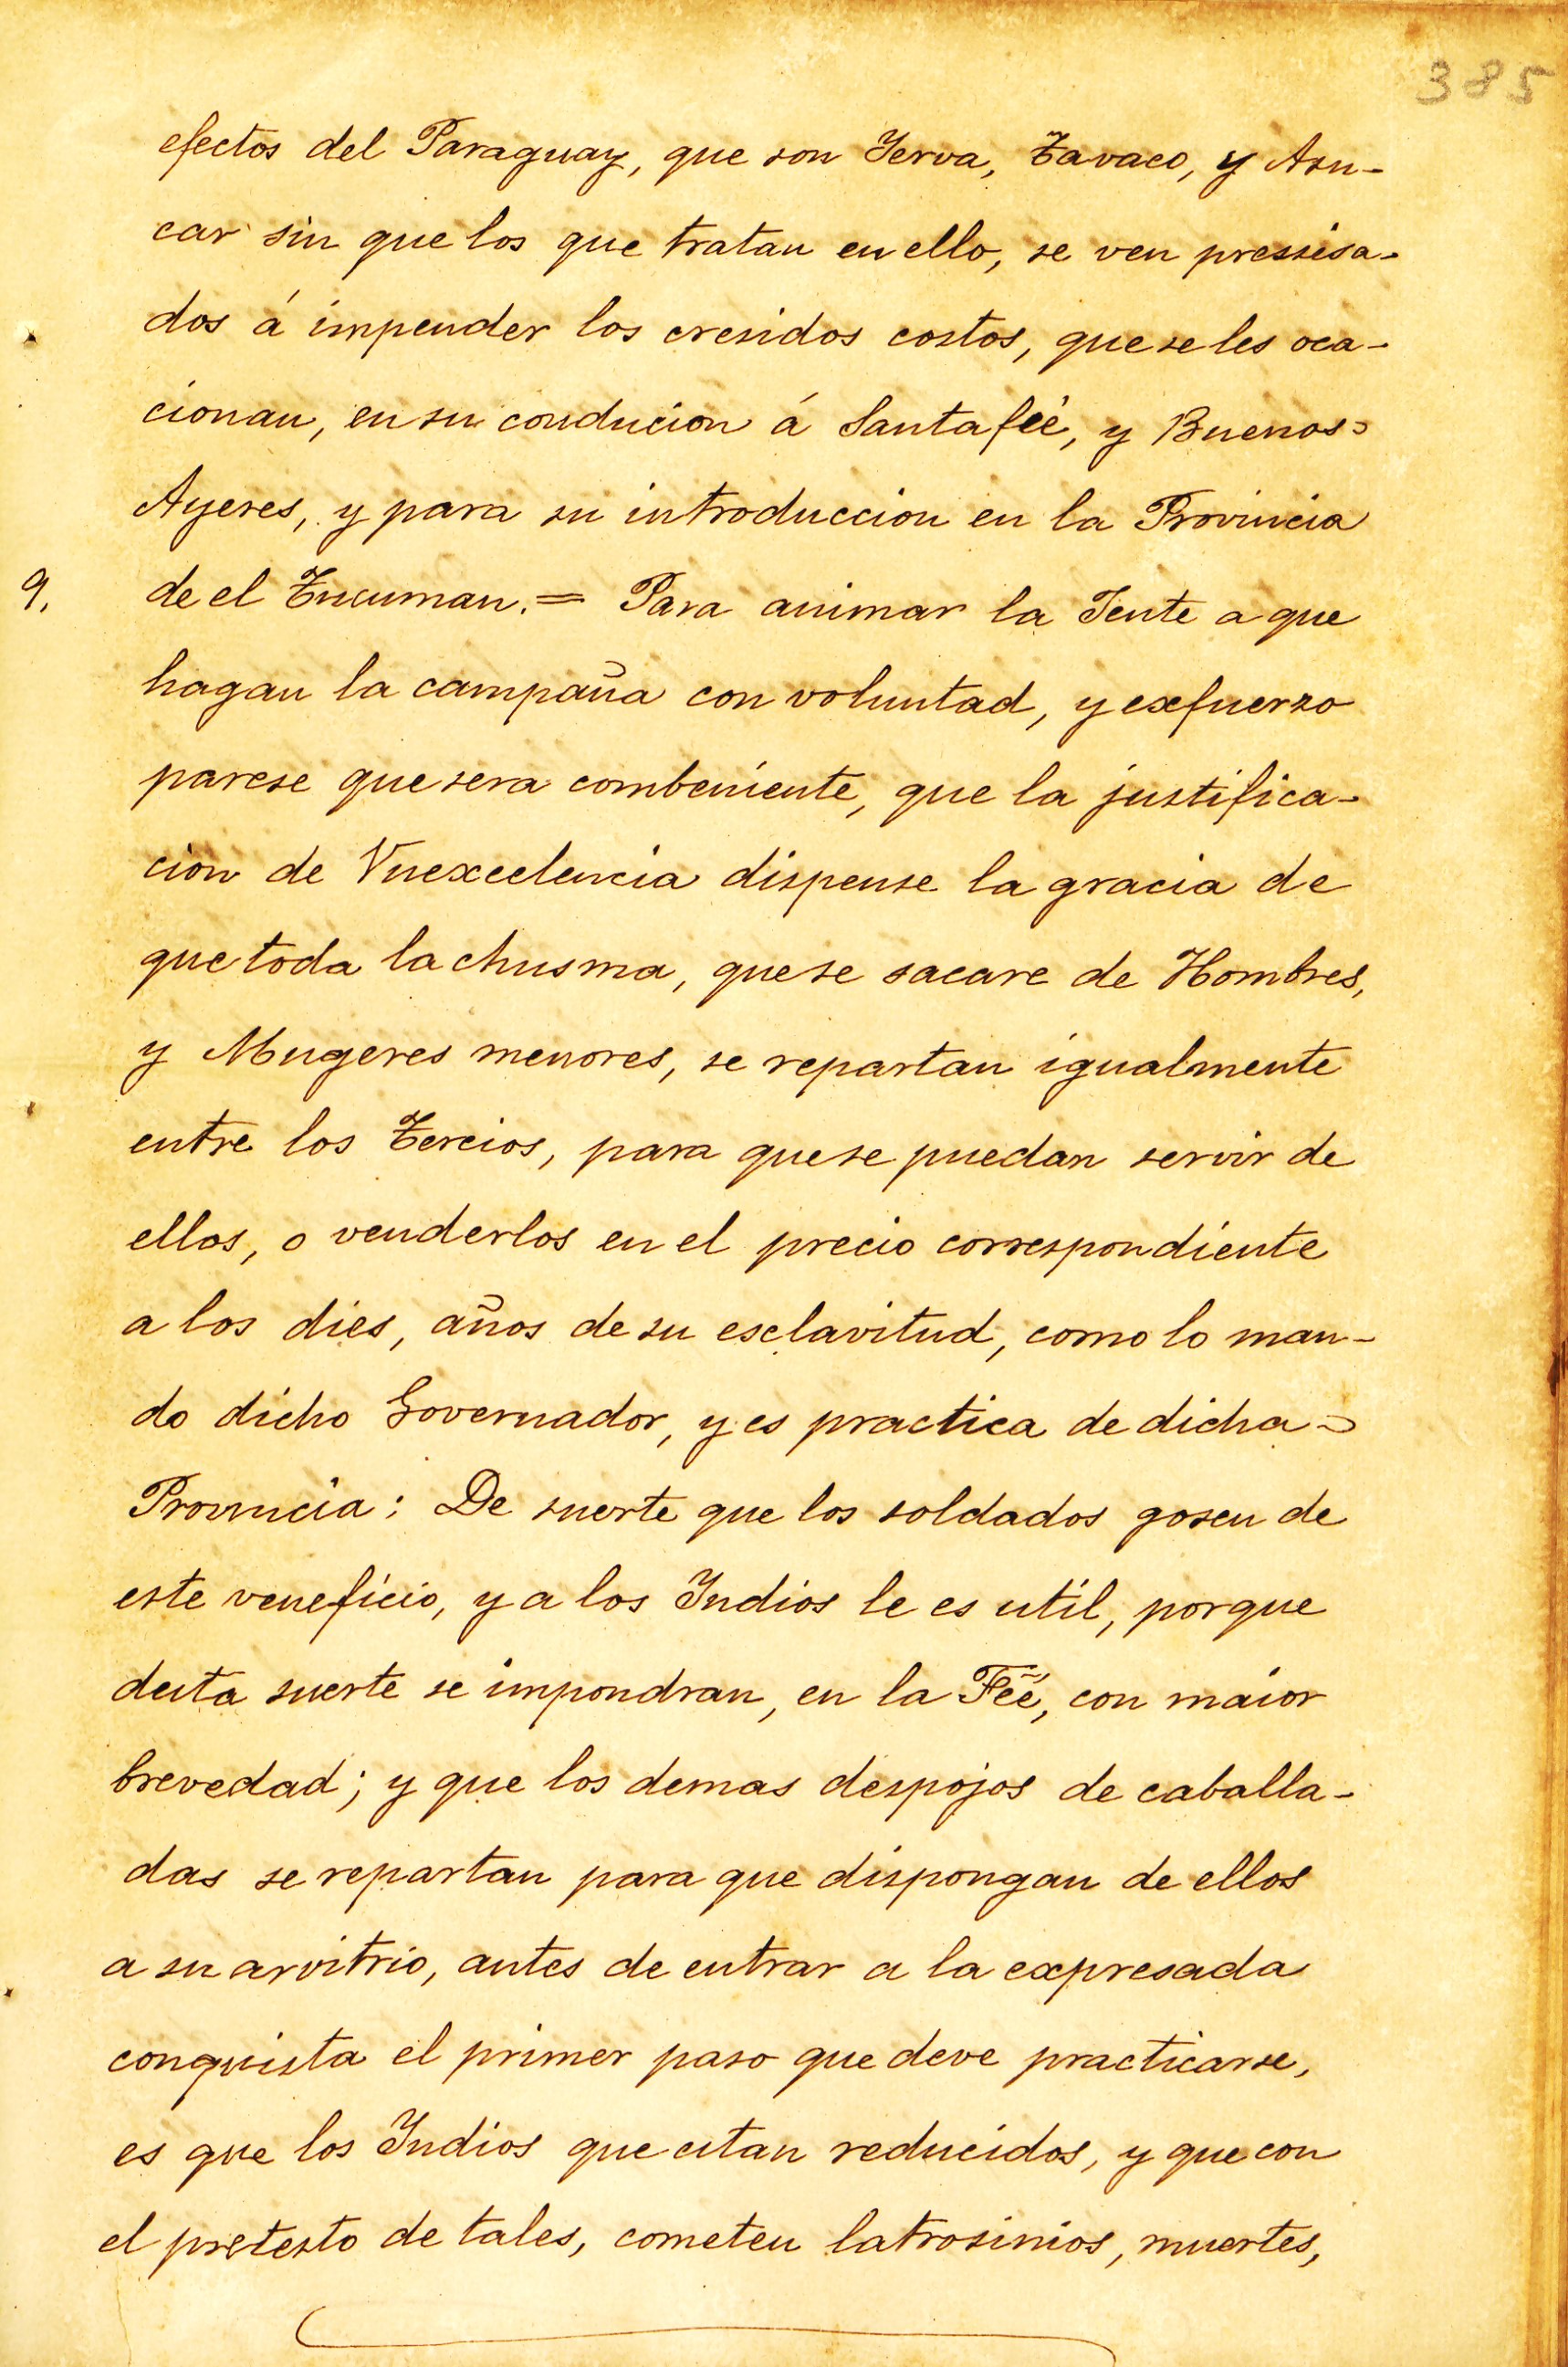 385
efectos del Paraguay, que son Yerva, Tavaco, y Asu-
car sin que los que tratan en ello, se ven pressisa-
dos á impender los cresidos costos, que se les oca-
cionan, en su conducion á Santa feé, y Buenos=
Ayeres, y para su introduccion en la Provincia
9. de el Tucuman.= Para animar la Jente a que
hagan la campaña con voluntad, y exfuerzo
parese que sera combeniente, que la justifica-
cion de Vuexcelencia dispense la gracia de
que toda la chusma, que se sacare de Hombres,
y Mugeres menores, se repartan igualmente
entre los Tercios, para que se puedan servir de
ellos, o venderlos en el precio correspondiente
a los dies, años de su esclavitud, como lo man-
do dicho Governador, y es practica de dicha=
Provincia: De suerte que los soldados gosen de
este veneficio, y a los Indios le es util, porque
desta suerte se impondran, en la Feé, con maior
brevedad; y que los demas despojos de caballa-
das se repartan para que dispongan de ellos
a su arvitrio, antes de entrar a la expresada
conquista el primer paso que deve practicarse,
es que los Indios que estan reducidos, y que con
el pretesto de tales, cometen latrosinios, muertes,